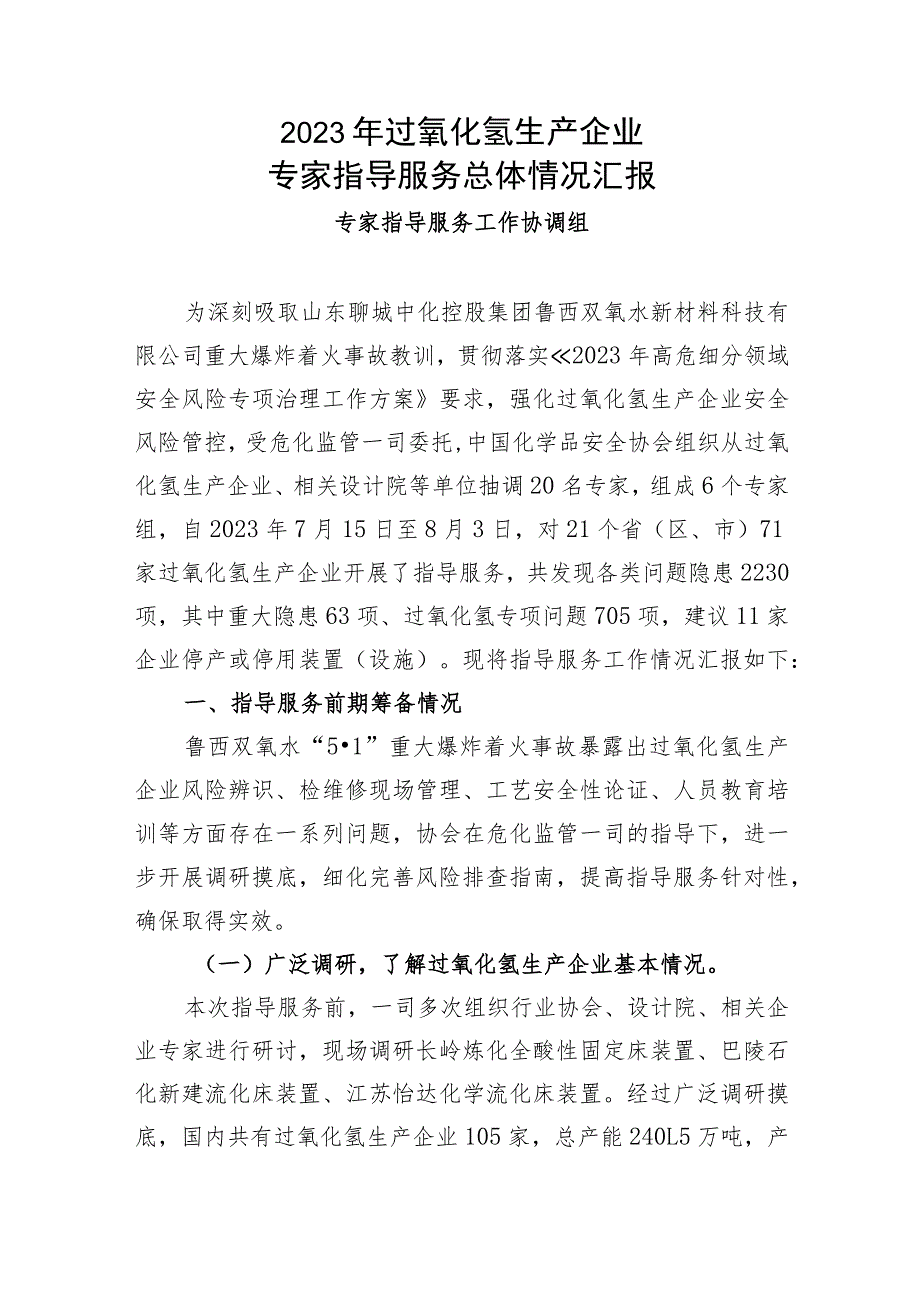 2023年过氧化氢生产企业
专家指导服务总体情况汇报
专家指导服务工作协调组
为深刻吸取山东聊城中化控股集团鲁西双氧水新材料科技有
限公司重大爆炸着火事故教训，贯彻落实≪2023年高危细分领域
安全风险专项治理工作方案》要求，强化过氧化氢生产企业安全
风险管控，受危化监管一司委托,中国化学品安全协会组织从过氧
化氢生产企业、相关设计院等单位抽调20名专家，组成6个专家
组，自2023年7月15日至8月3日，对21个省（区、市）71
家过氧化氢生产企业开展了指导服务，共发现各类问题隐患2230
项，其中重大隐患63项、过氧化氢专项问题705项，建议11家
企业停产或停用装置（设施）。现将指导服务工作情况汇报如下：
一、指导服务前期筹备情况
鲁西双氧水“5•1”重大爆炸着火事故暴露出过氧化氢生产
企业风险辨识、检维修现场管理、工艺安全性论证、人员教育培
训等方面存在一系列问题，协会在危化监管一司的指导下，进一
步开展调研摸底，细化完善风险排查指南，提高指导服务针对性，
确保取得实效。
（一）广泛调研，了解过氧化氢生产企业基本情况。
本次指导服务前，一司多次组织行业协会、设计院、相关企
业专家进行研讨，现场调研长岭炼化全酸性固定床装置、巴陵石
化新建流化床装置、江苏怡达化学流化床装置。经过广泛调研摸
底，国内共有过氧化氢生产企业105家，总产能240L5万吨，产